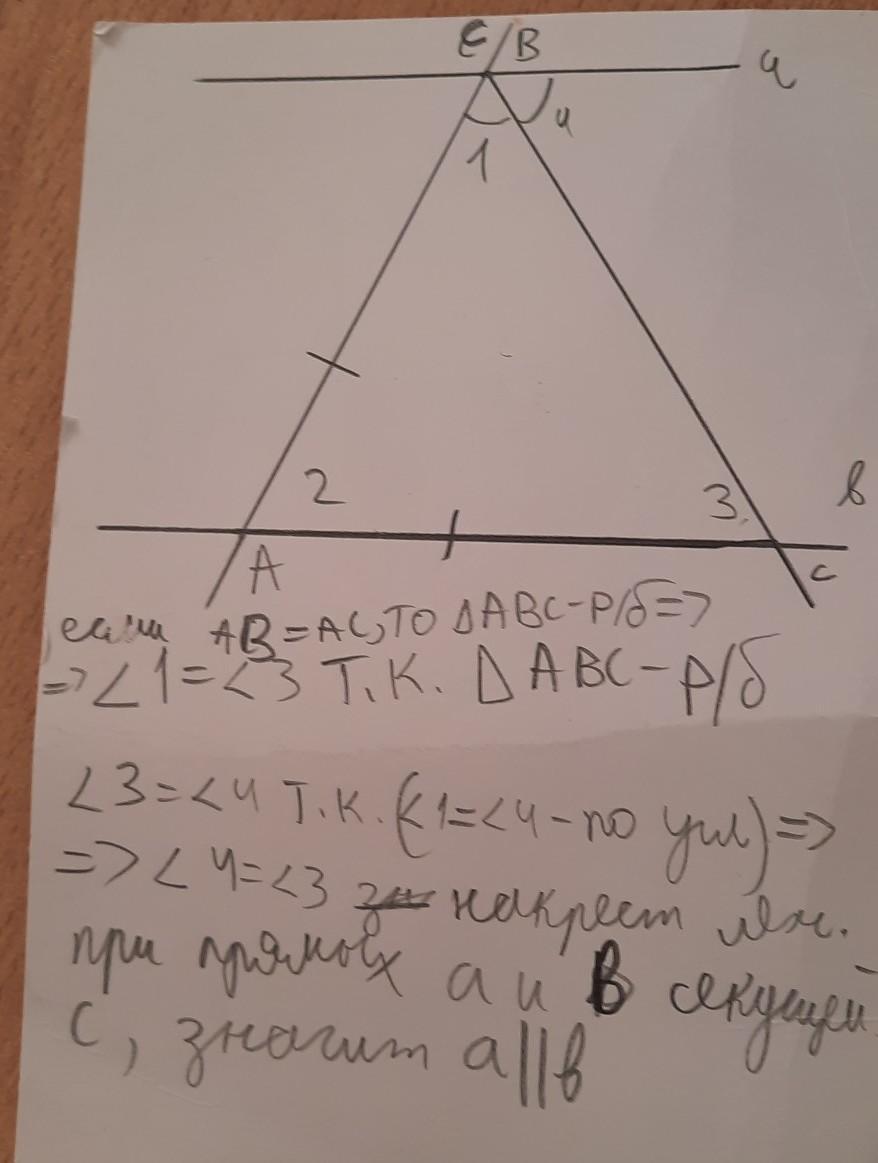 C/B a
1 4
2 3 в
A c
если AB=AC, то ΔABC-р/б=>
=>∠1=∠3 Т.К. ΔABC-р/б
∠3=∠4 Т.К. (∠1=∠4-по усл)=>
=>∠4=∠3 накрест леж.
при прямых a и в секущей
с, значит a||в